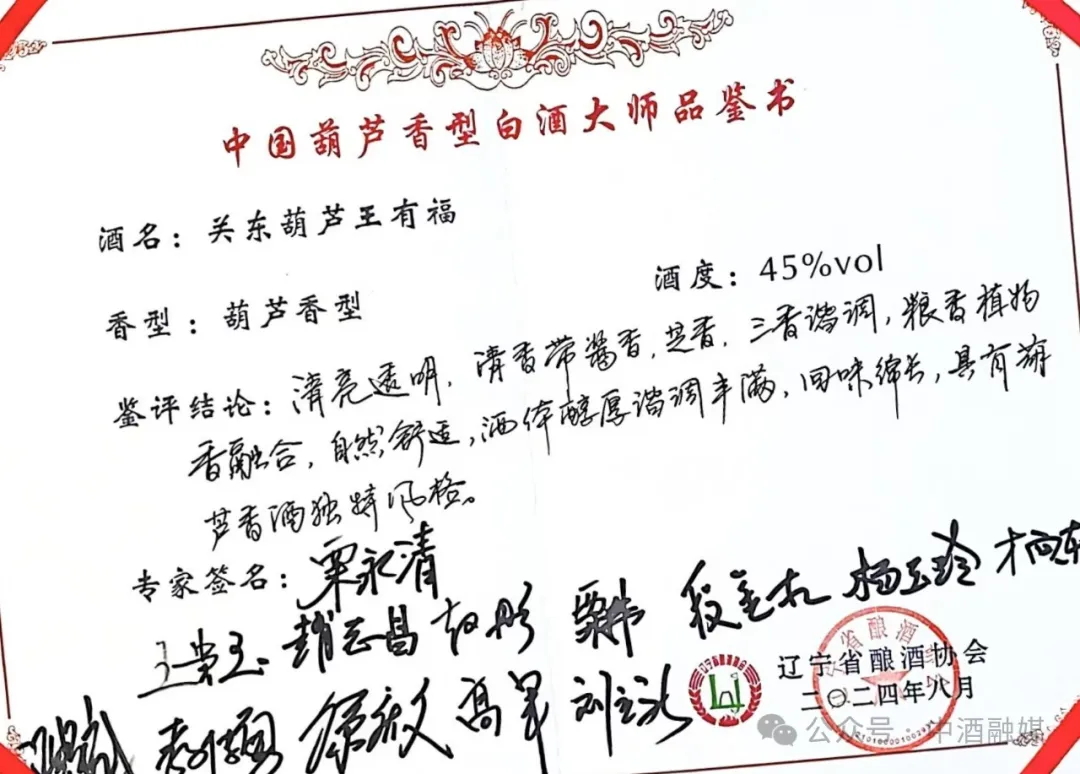 中国葫芦香型白酒大师品鉴书
酒名：关东葫芦王有福
香型：葫芦香型
酒度：45%vol
鉴评结论：清亮透明，清香带酱香、芝香，三香谐调，粮香植物
香融合，自然舒适，酒体醇厚谐调丰满，回味绵长，具有葫
芦香酒独特风格。
专家签名：栗永清
赵志昌 栗伟 段金 杨玉玲
高军
辽宁省酿酒协会
二〇二四年八月
公众号：中酒融媒